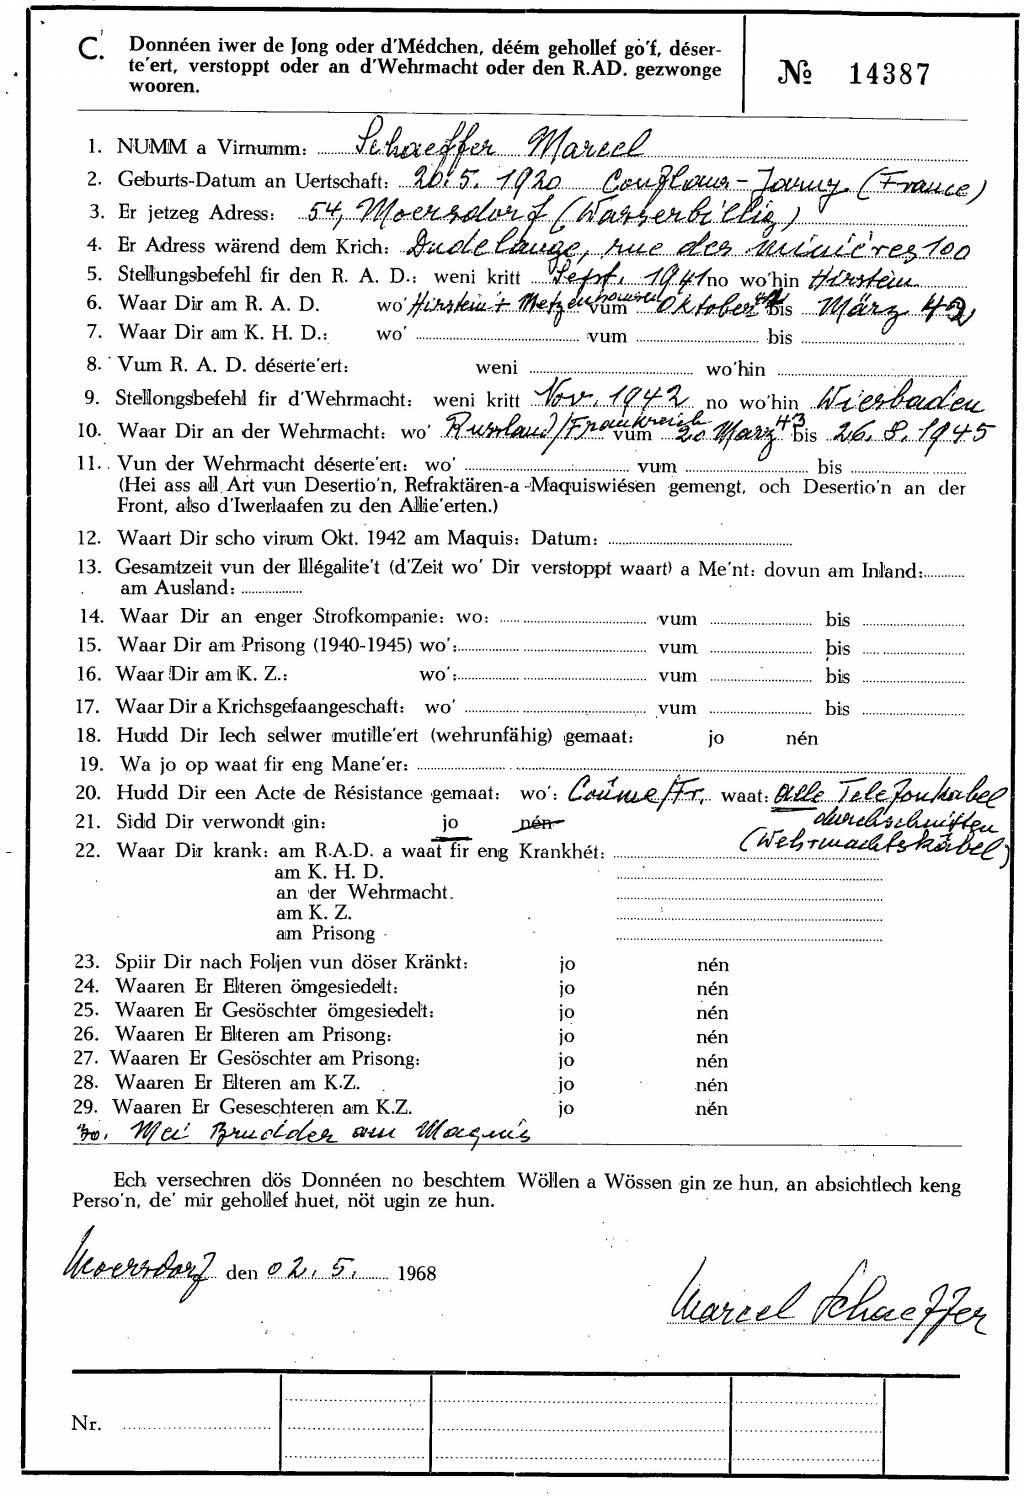 C. Donnéen iwer de Jong oder d'Médchen, déém gehollef go'f, déser-
te'ert, verstoppt oder an d'Wehrmacht oder den R.AD. gezwonge
wooren.
№ 14387
1. NUMM a Virnumm: Schaeffer Marcel
2. Geburts-Datum an Uertschaft: 20.5.1920 Conflans-Jarny (France)
3. Er jetzeg Adress: 54, Moersdorf (Wasserbillig)
4. Er Adress wärend dem Krich: Dudelange, rue des minières 100
5. Stellungsbefehl fir den R. A. D.: weni kritt Sept. 1941 no wo'hin Hirstein
6. Waar Dir am R. A. D. wo' Hirstein + Metzenhausen vum Oktober 41 bis März 42
7. Waar Dir am K. H. D.: wo' vum bis
8. Vum R. A. D. déserte'ert: weni wo'hin
9. Stellongsbefehl fir d'Wehrmacht: weni kritt Nov. 1942 no wo'hin Wiesbaden
10. Waar Dir an der Wehrmacht: wo' Russland/Frankreich vum 20 März 43 bis 26.8.1945
11. Vun der Wehrmacht déserte'ert: wo' vum bis
(Hei ass all Art vun Desertio'n, Refraktären-a-Maquiswiésen gemengt, och Desertio'n an der
Front, also d'Iwerlaafen zu den Allie'erten.)
12. Waart Dir scho virum Okt. 1942 am Maquis: Datum:
13. Gesamtzeit vun der Illégalite't (d'Zeit wo' Dir verstoppt waart) a Me'nt: dovun am Inland:
am Ausland:
14. Waar Dir an enger Strofkompanie: wo: vum bis
15. Waar Dir am Prisong (1940-1945) wo': vum bis
16. Waar Dir am K. Z.: wo': vum bis
17. Waar Dir a Krichsgefaangeschaft: wo' vum bis
18. Hudd Dir Iech selwer mutille'ert (wehrunfähig) gemaat: jo nén
19. Wa jo op waat fir eng Mane'er:
20. Hudd Dir een Acte de Résistance gemaat: wo': Coûme/Fr. waat: alle Telefonkabel
durchschnitten
21. Sidd Dir verwondt gin: jo nén
(Wehrmachtskabel)
22. Waar Dir krank: am R.A.D. a waat fir eng Krankhét:
am K. H. D.
an der Wehrmacht.
am K. Z.
am Prisong
23. Spiir Dir nach Foljen vun döser Kränkt: jo nén
24. Waaren Er Elteren ömgesiedelt: jo nén
25. Waaren Er Gesöschter ömgesiedelt: jo nén
26. Waaren Er Elteren am Prisong: jo nén
27. Waaren Er Gesöschter am Prisong: jo nén
28. Waaren Er Elteren am K.Z. jo nén
29. Waaren Er Geseschteren am K.Z. jo nén
30. Mei Brudder am Maquis
Ech versechren dös Donnéen no beschtem Wöllen a Wössen gin ze hun, an absichtlech keng
Perso'n, de' mir gehollef huet, nöt ugin ze hun.
Moersdorf den 02.5. 1968
Marcel Schaeffer
Nr.